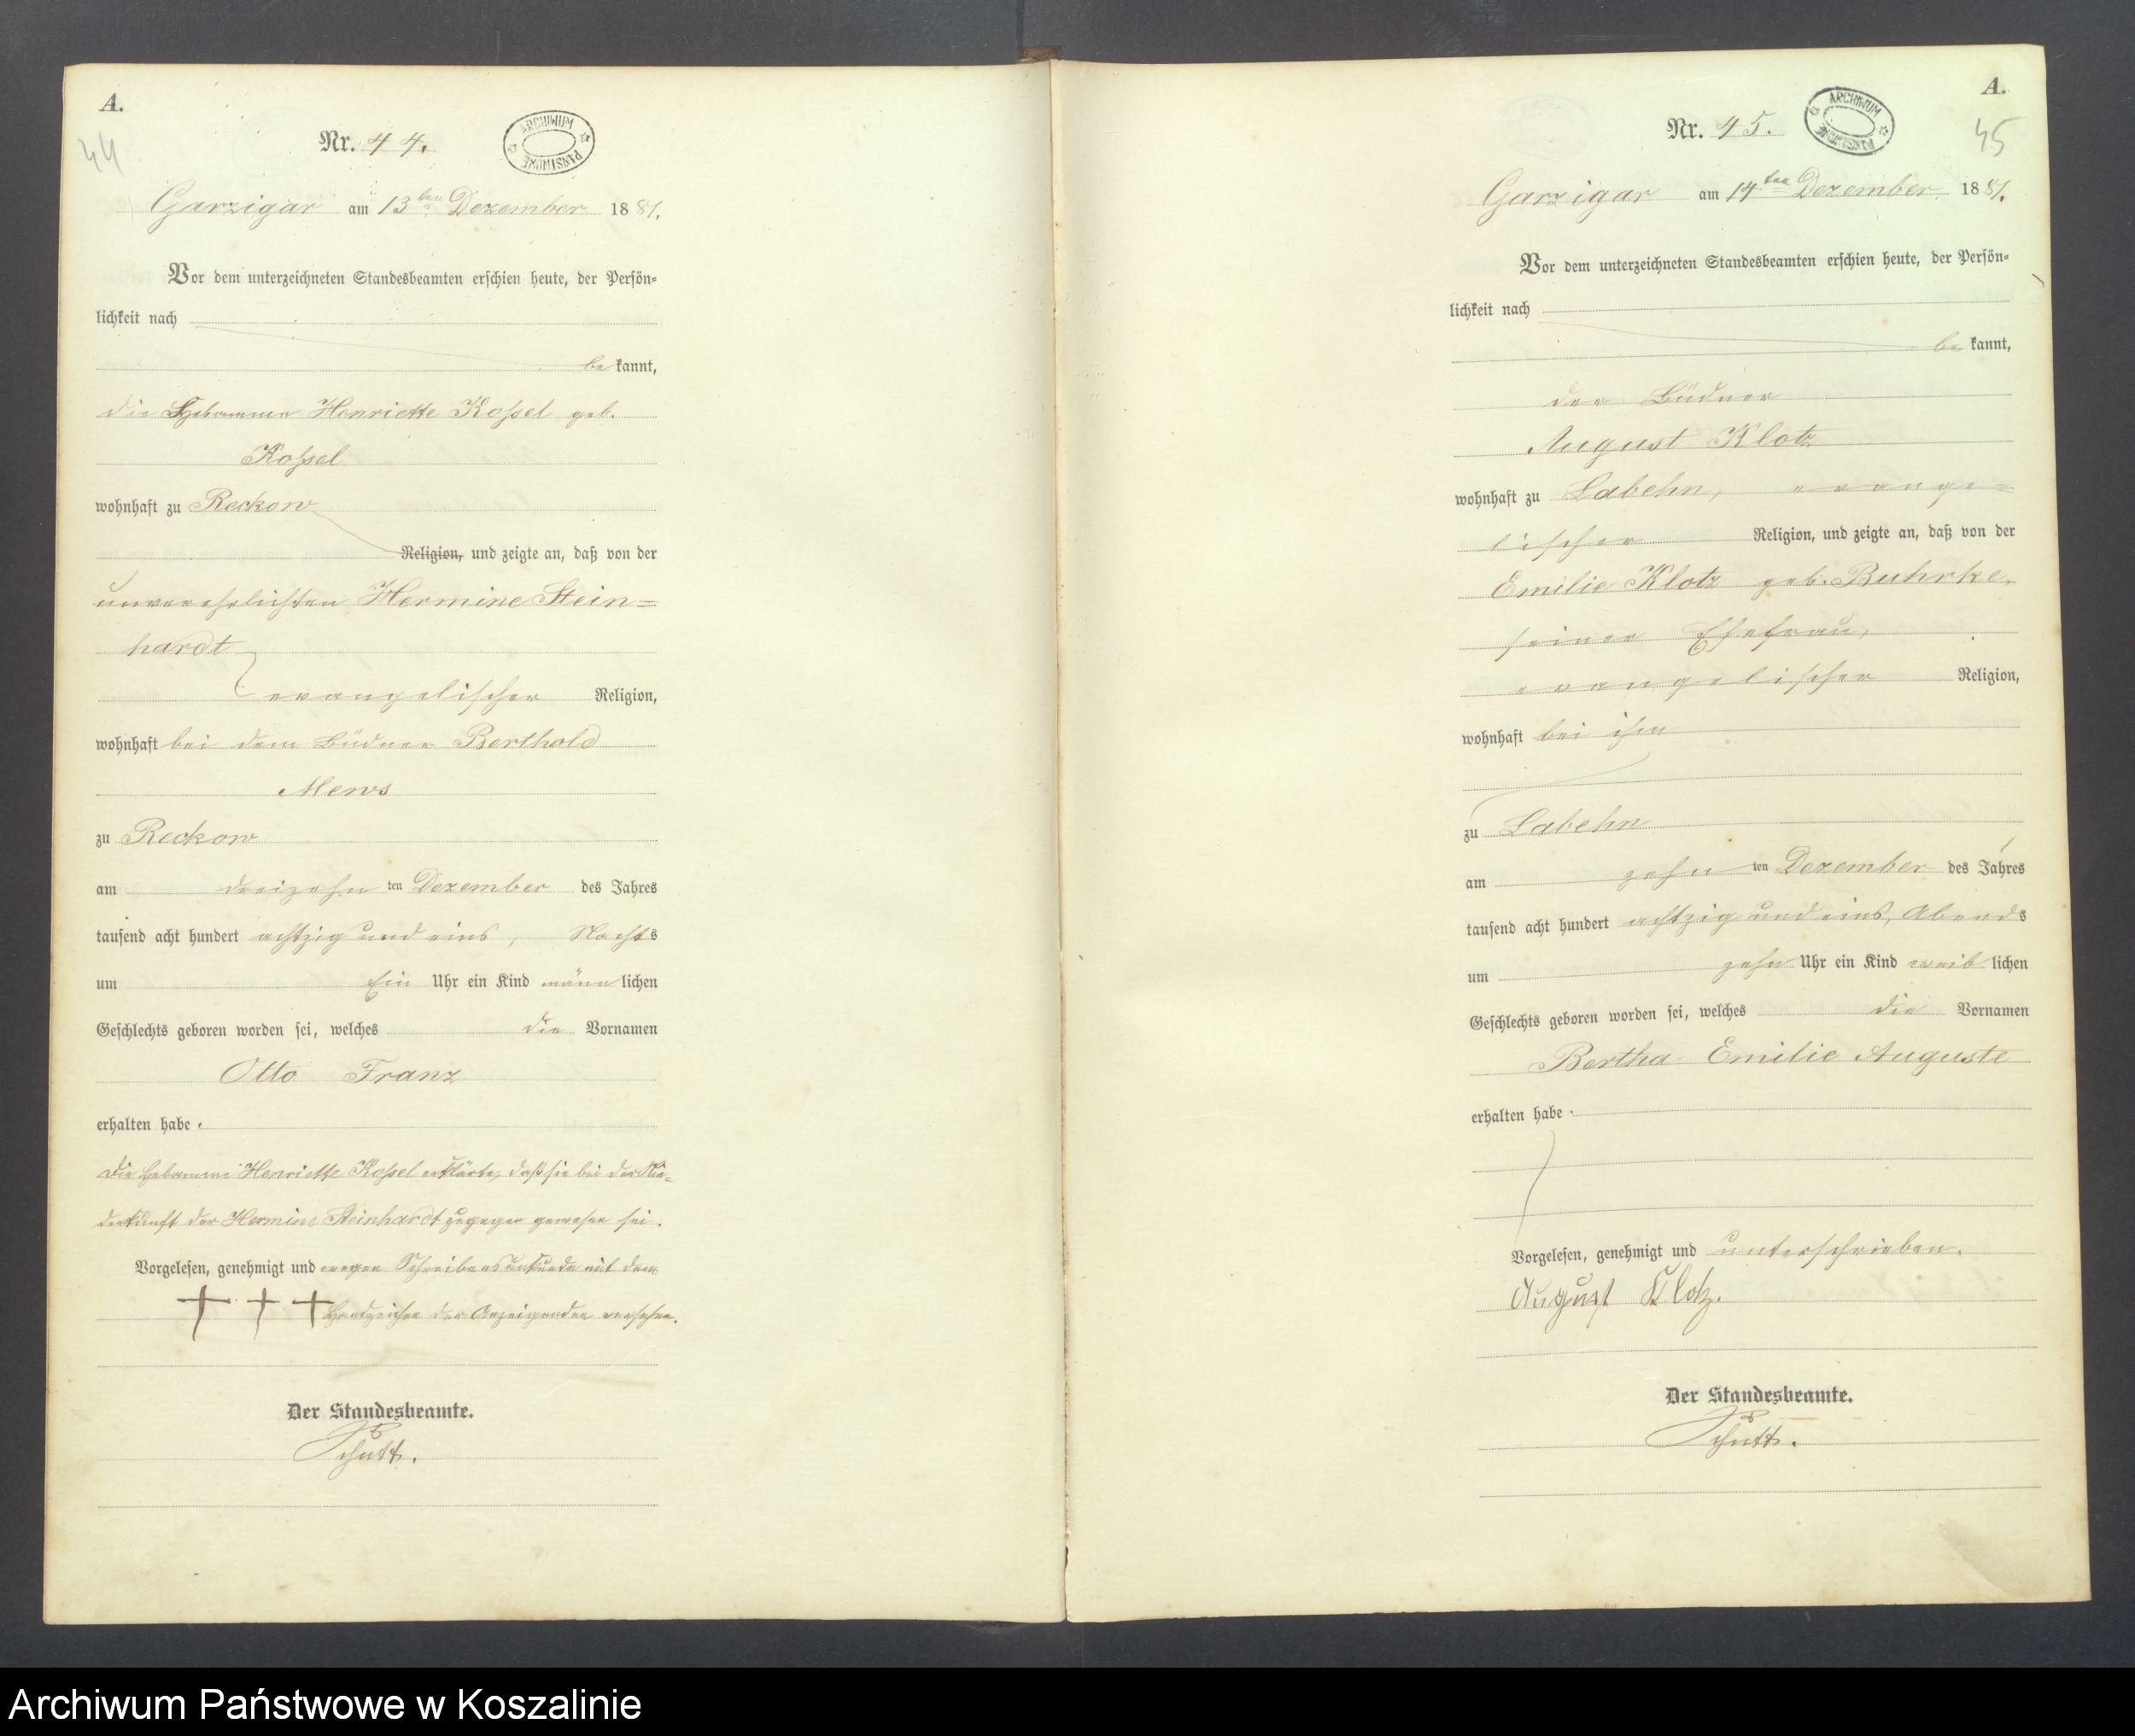 A.
44
Nr. 44.
ARCHIWUM PAŃSTWOWE
Garzigar am 13ten Dezember 1881.
Vor dem unterzeichneten Standesbeamten erschien heute, der Persön-
lichkeit nach
be kannt,
die Hebamme Henriette Kossel geb.
Kossel
wohnhaft zu Reckow
Religion, und zeigte an, daß von der
unverehelichten Hermine Stein-
hardt
evangelischer Religion,
wohnhaft bei dem Büdner Berthold
Mews
zu Reckow
am dreizehn ten Dezember des Jahres
tausend acht hundert achtzig und eins, Nachts
um Ein Uhr ein Kind männ lichen
Geschlechts geboren worden sei, welches die Vornamen
Otto Franz
erhalten habe.
Die Hebamme Henriette Kossel erklärte, daß sie bei der Nie-
derkunft der Hermine Steinhardt zugegen gewesen sei.
Vorgelesen, genehmigt und wegen Schreibensunkunde mit dem
+ + + Handzeichen der Anzeigenden versehen.
Der Standesbeamte.
A.
45
Nr. 45.
ARCHIWUM PAŃSTWOWE
Garzigar am 14ten Dezember 1881.
Vor dem unterzeichneten Standesbeamten erschien heute, der Persön-
lichkeit nach
be kannt,
der Büdner
August Klotz
wohnhaft zu Labehn, evange-
lischer Religion, und zeigte an, daß von der
Emilie Klotz geb. Ruhrke,
seiner Ehefrau,
evangelischer Religion,
wohnhaft bei ihm
zu Labehn
am zehn ten Dezember des Jahres
tausend acht hundert achtzig und eins, Abends
um zehn Uhr ein Kind weib lichen
Geschlechts geboren worden sei, welches die Vornamen
Bertha Emilie Auguste
erhalten habe.
Vorgelesen, genehmigt und unterschrieben.
August Klotz.
Der Standesbeamte.
Archiwum Państwowe w Koszalinie